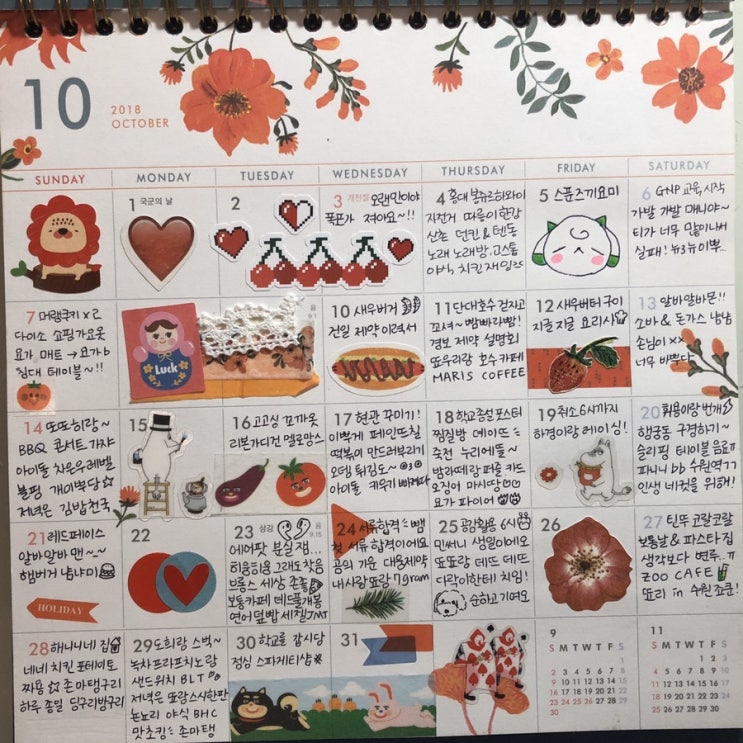 10
2018
OCTOBER
SUNDAY MONDAY TUESDAY WEDNESDAY THURSDAY FRIDAY SATURDAY
1 국군의 날
2
3 개천절 오랜만이야
폭포가 져아요~!!
4 홍대
자전거 따릉이 한강
산촌 던킨 & 텐동
노래 노래방, 고스톱
야식, 치킨
5 스푼즈끼요미
6 GNP 교육 시작
가발 개발 매니아~
티가 너무 많이나서
실패! 뉴3뉴이뽀..
7 머랭쿠키 x 2
다이소 쇼핑가요옷
요가 매트 → 요가b
침대 테이블~!!
Luck
음 9.1
10 새우버거
건일 제약 이력서
11 단대호수 걷자고
꼬셔~ 빰빠라빰!
경보 제약 설명회
또우리랑 호수 카페
MARIS COFFEE
12 새우버터구이
지글 지글 요리사
13 알바알바몬!!
소바 & 돈가스 냠냠
손님이 xx
너무 바쁘다
14 또또히랑~
BBQ 콘서트 가쟈
아이돌 치운우레벨
볼핑 개이쁘당☆
저녁은 김밥천국
15
16 고고싱 꼬까옷
리본가디건 멜롱망스
17 현관 꾸미기!
이쁘게 페인뜨칠
떡볶이 만드러부러기
오뎅 튀김도~
아이돌 키우기 빠져따
18 학교종설포스터
찜질방 데이뜨
죽전 누리에뜰~
밤라떼랑 퍼즐 카드
오징어 마시땅
요가 파이어
19 취소 6시까지
하경이랑 레이싱!
20 휘용이랑 번개
행궁동 구경하기~
슬리핑 테이블 음료
파니니 bb 수원역ㄱㄱ
인생 네컷을 위해!
21 레드페이스
알바알바 맨~~
햄버거 냠냐미
HOLIDAY
22
23 상강 음 9.15
에어팟 분실 잼...
히융히융 그래도 찾음
브롬스 세상 존졸
보통카페 데드풀개봉
연어덮밥 세칠JMT
24 서류합격 빰
첫 서류합격이에요
곰의 기운 대웅제약
내사랑 또랑 7gram
25 공간활용 6시
민써니 생일이에오
또또랑 데드 데뜨
다락이한테 치임!
순하고 기여오
26
27 틴뚜 코랄코랄
보통날 & 파스타 집
생각보다 별루..ㅠ
ZOO CAFE
뚀리 in 수원죠쿤!
28 해니니네 집
네네 치킨 포테이토
짜용☆존마탱구리
하루 종일 딩구리방구리
29 도희랑 스벅~
녹차 프라프치노랑
샌드위치 BLT
저녁은 또랑스시한판
논노리 야식 BHC
맛초킹 존마탱
30 학교를 감시당
점심 스파게티샵
31
9
S M T W T F S
1
2 3 4 5 6 7 8
9 10 11 12 13 14 15
16 17 18 19 20 21 22
23 24 25 26 27 28 29
30
11
S M T W T F S
1 2 3
4 5 6 7 8 9 10
11 12 13 14 15 16 17
18 19 20 21 22 23 24
25 26 27 28 29 30